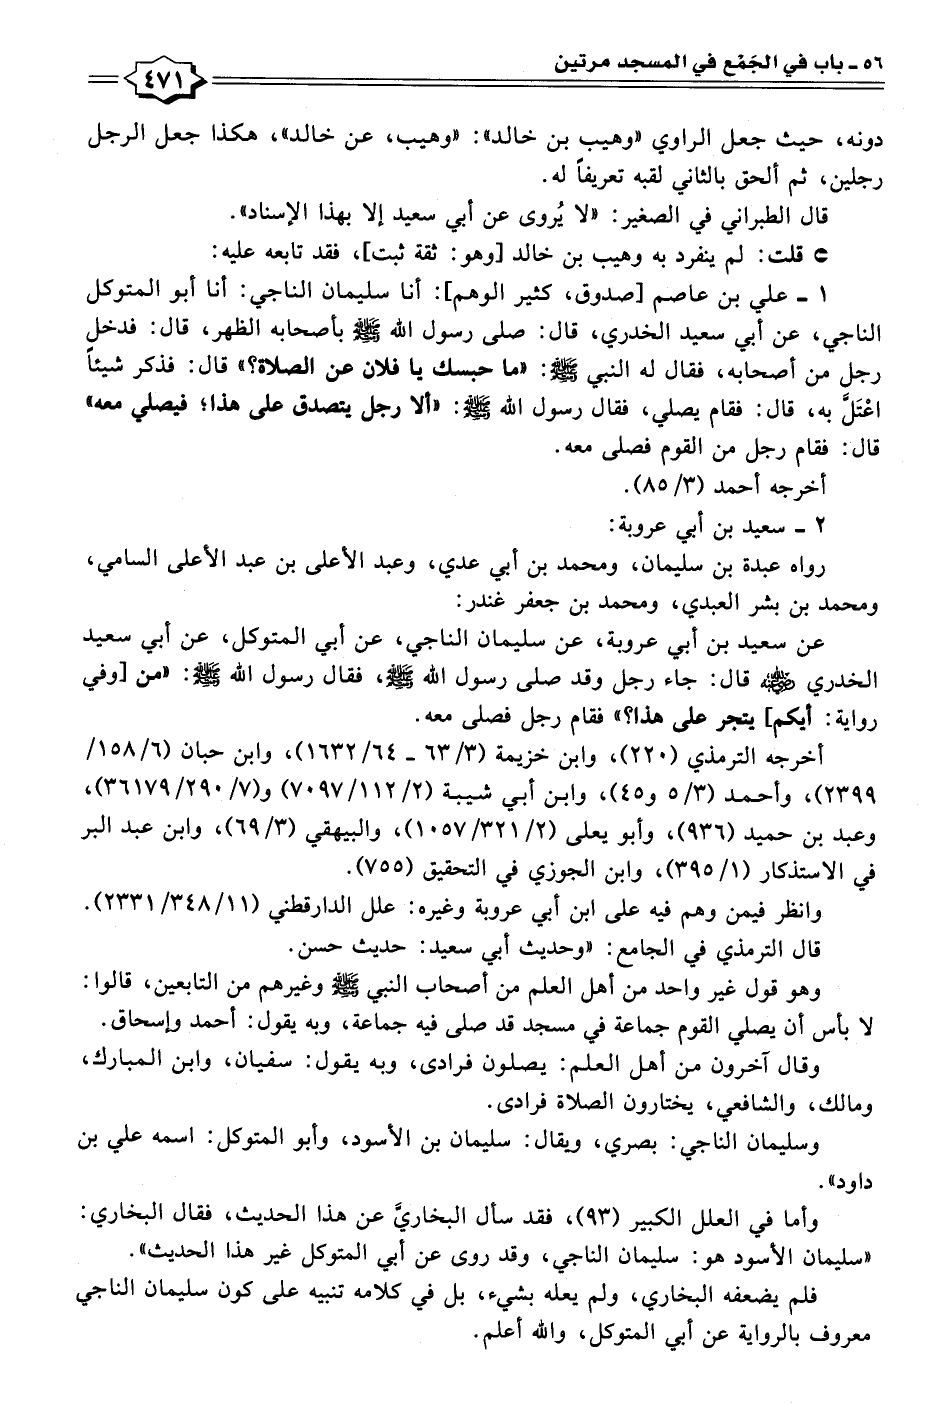 ٥٦ ـ باب في الجَمْع في المسجد مرتين
٤٧١
دونه، حيث جعل الراوي «وهيب بن خالد»: «وهيب، عن خالد»، هكذا جعل الرجل
رجلين، ثم ألحق بالثاني لقبه تعريفاً له.
قال الطبراني في الصغير: «لا يُروى عن أبي سعيد إلا بهذا الإسناد».
قلت: لم ينفرد به وهيب بن خالد [وهو: ثقة ثبت]، فقد تابعه عليه:
١ ـ علي بن عاصم [صدوق، كثير الوهم]: أنا سليمان الناجي: أنا أبو المتوكل
الناجي، عن أبي سعيد الخدري، قال: صلى رسول الله ﷺ بأصحابه الظهر، قال: فدخل
رجل من أصحابه، فقال له النبي ﷺ: «ما حبسك يا فلان عن الصلاة؟» قال: فذكر شيئاً
اعْتَلَّ به، قال: فقام يصلي، فقال رسول الله ﷺ: «ألا رجل يتصدق على هذا؛ فيصلي معه»
قال: فقام رجل من القوم فصلى معه.
أخرجه أحمد (٨٥/٣).
٢ ـ سعيد بن أبي عروبة:
رواه عبدة بن سليمان، ومحمد بن أبي عدي، وعبد الأعلى بن عبد الأعلى السامي،
ومحمد بن بشر العبدي، ومحمد بن جعفر غندر:
عن سعيد بن أبي عروبة، عن سليمان الناجي، عن أبي المتوكل، عن أبي سعيد
الخدري رضي الله عنه قال: جاء رجل وقد صلى رسول الله ﷺ، فقال رسول الله ﷺ: «من [وفي
رواية: أيكم] يتجر على هذا؟» فقام رجل فصلى معه.
أخرجه الترمذي (٢٢٠)، وابن خزيمة (٦٣/٣ ـ ١٦٣٢/٦٤)، وابن حبان (١٥٨/٦/
٢٣٩٩)، وأحمد (٥/٣ و٤٥)، وابن أبي شيبة (٧٠٩٧/١١٢/٢) و(٣٦١٧٩/٢٩٠/٧)،
وعبد بن حميد (٩٣٦)، وأبو يعلى (١٠٥٧/٣٢١/٢)، والبيهقي (٦٩/٣)، وابن عبد البر
في الاستذكار (٣٩٥/١)، وابن الجوزي في التحقيق (٧٥٥).
وانظر فيمن وهم فيه على ابن أبي عروبة وغيره: علل الدارقطني (٢٣٣١/٣٤٨/١١).
قال الترمذي في الجامع: «وحديث أبي سعيد: حديث حسن.
وهو قول غير واحد من أهل العلم من أصحاب النبي ﷺ وغيرهم من التابعين، قالوا:
لا بأس أن يصلي القوم جماعة في مسجد قد صلى فيه جماعة، وبه يقول: أحمد وإسحاق.
وقال آخرون من أهل العلم: يصلون فرادى، وبه يقول: سفيان، وابن المبارك،
ومالك، والشافعي، يختارون الصلاة فرادى.
وسليمان الناجي: بصري، ويقال: سليمان بن الأسود، وأبو المتوكل: اسمه علي بن
داود».
وأما في العلل الكبير (٩٣)، فقد سأل البخاريَّ عن هذا الحديث، فقال البخاري:
«سليمان الأسود هو: سليمان الناجي، وقد روى عن أبي المتوكل غير هذا الحديث».
فلم يضعفه البخاري، ولم يعله بشيء، بل في كلامه تنبيه على كون سليمان الناجي
معروف بالرواية عن أبي المتوكل، والله أعلم.